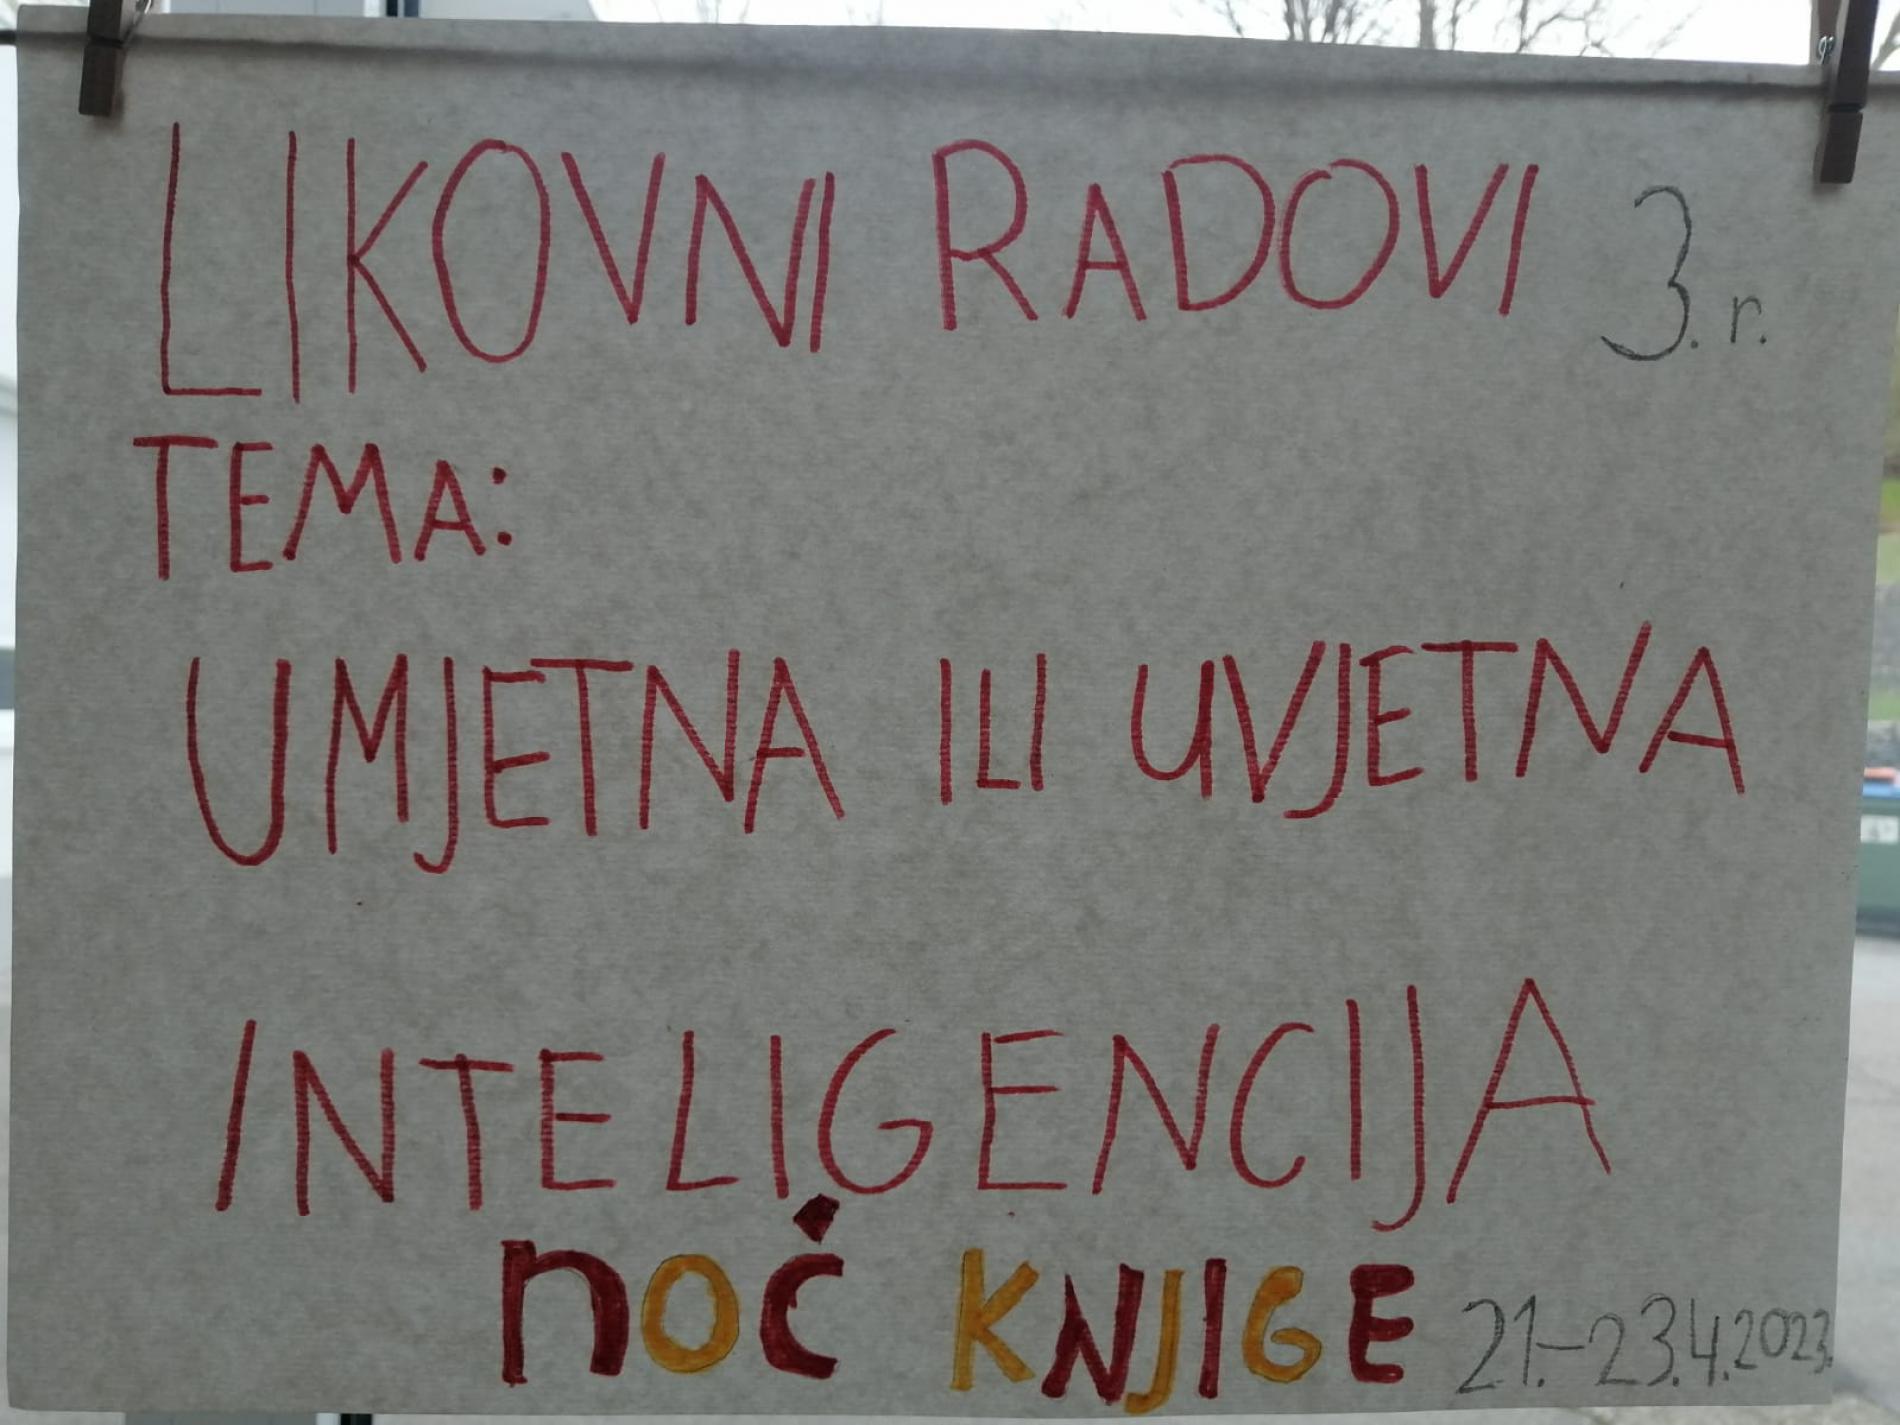 LIKOVNI RADOVI 3. r.
TEMA:
UMJETNA ILI UVJETNA
INTELIGENCIJA
NOĆ KNJIGE 21.-23.4.2023.